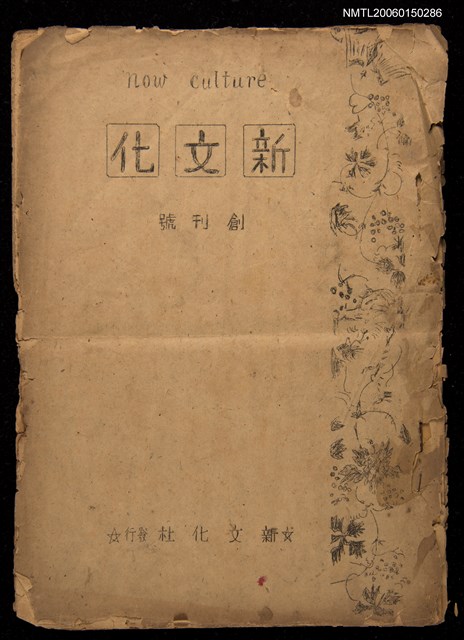 NMTL20060150286
now culture
新文化
創刊號
☆新文化社發行☆